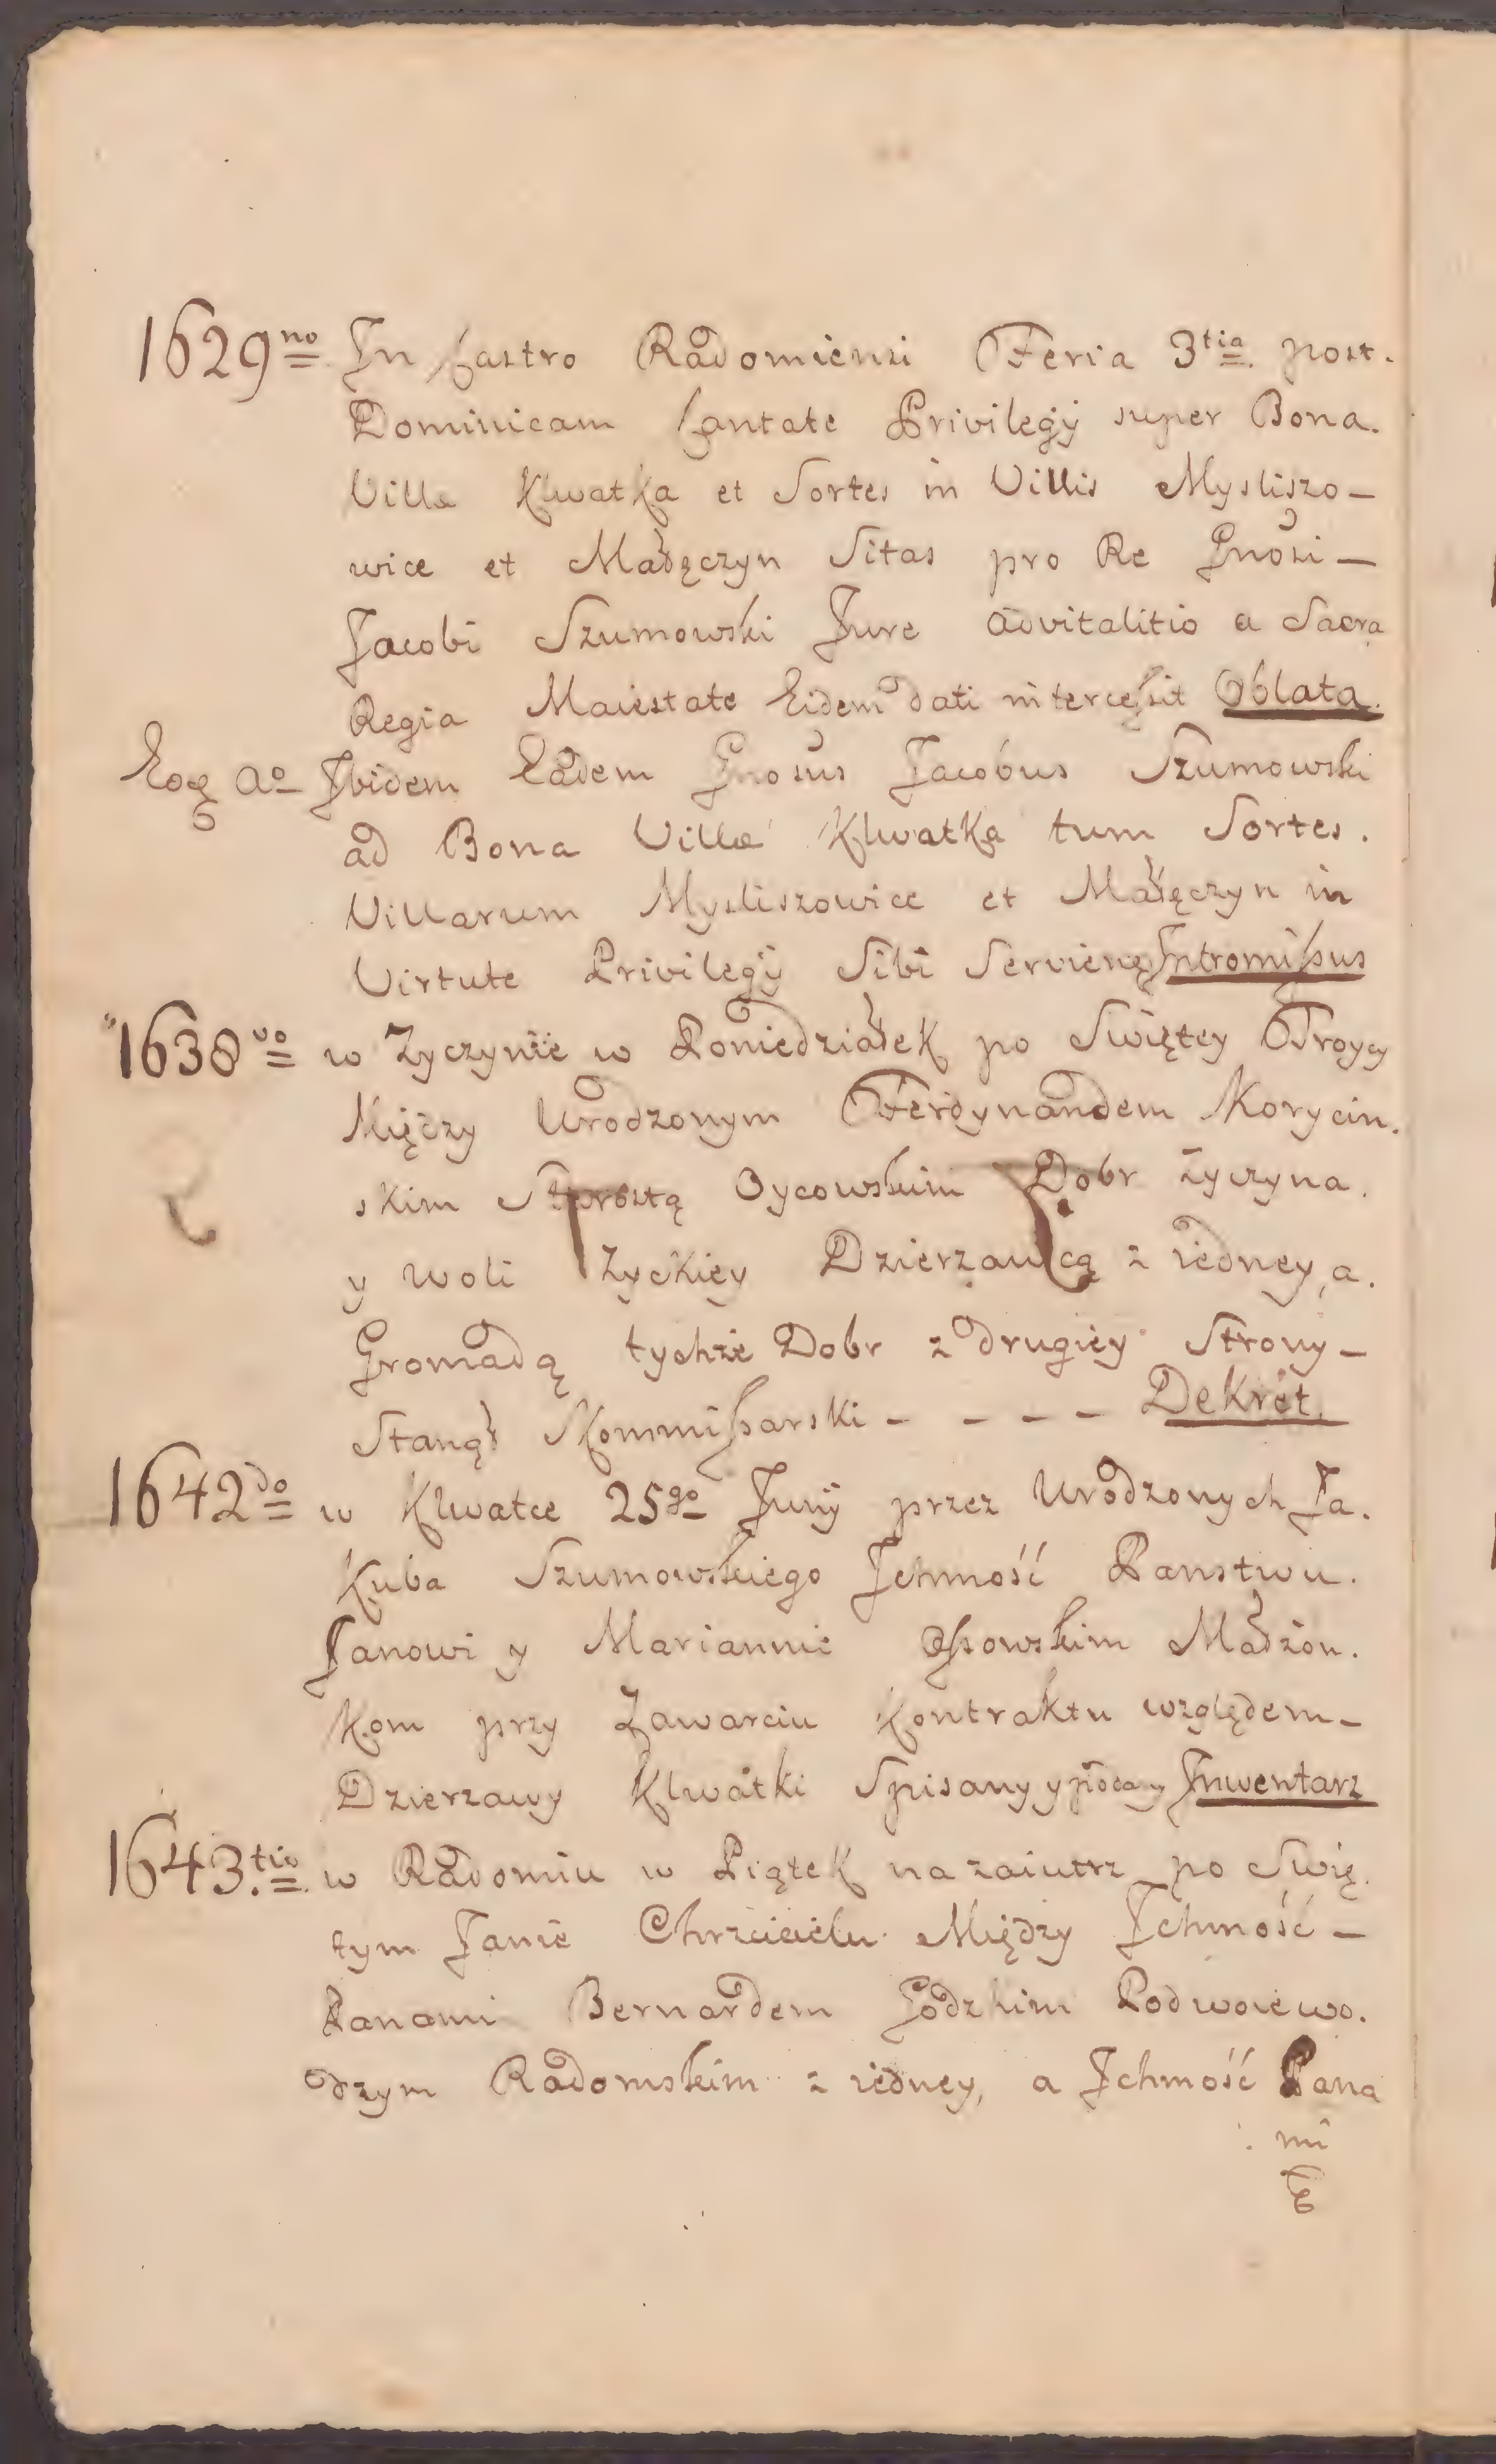 1629no In Castro Radomiensi Feria 3tia post.
Dominicam Cantate Privilegÿ super Bona.
Villæ Klwatka et Sortes in Villis Mysliszo-
wice et Małęczyn Sitas pro Re Gnosi-
Jacobi Szumowski Jure advitalitio a Sacra
Regia Maiestate Eidem dati intercessit Oblata.
Eoq ao Ibidem Eadem Gnosus Jacobus Szumowski
ad Bona Villæ Klwatka tum Sortes.
Villarum Mysliszowice et Małęczyn in
Virtute Privilegÿ Sibi Servienq Intromissus
1638vo w Zyczynie w Poniedziałek po Swiętey Troycy
Między Urodzonym Ferdynandem Korycin.
skim Starostą Oycowskim Dobr Zyczyna.
y Woli Zyckiey Dzierzawcą z iedney, a.
Gromadą tychże Dobr z drugiey Strony-
Stanął Kommissarski - - - - Dekret.
1642do w Klwatce 25go Junÿ przez Urodzonych Ja.
kuba Szumowskiego Ichmość Panstwu.
Janowi y Mariannie Ossowskim Małżon.
kom przy Zawarciu Kontraktu względem-
Dzierzawy Klwatki Spisany y podany Inwentarz
1643.tio w Radomiu w Piątek nazaiutrz po Swię.
tym Janie Chrzcicielu Między Ichmość-
Panami Bernardem Godzkim Podwoiewo.
dzym Radomskim z iedney, a Ichmość Pana
mi